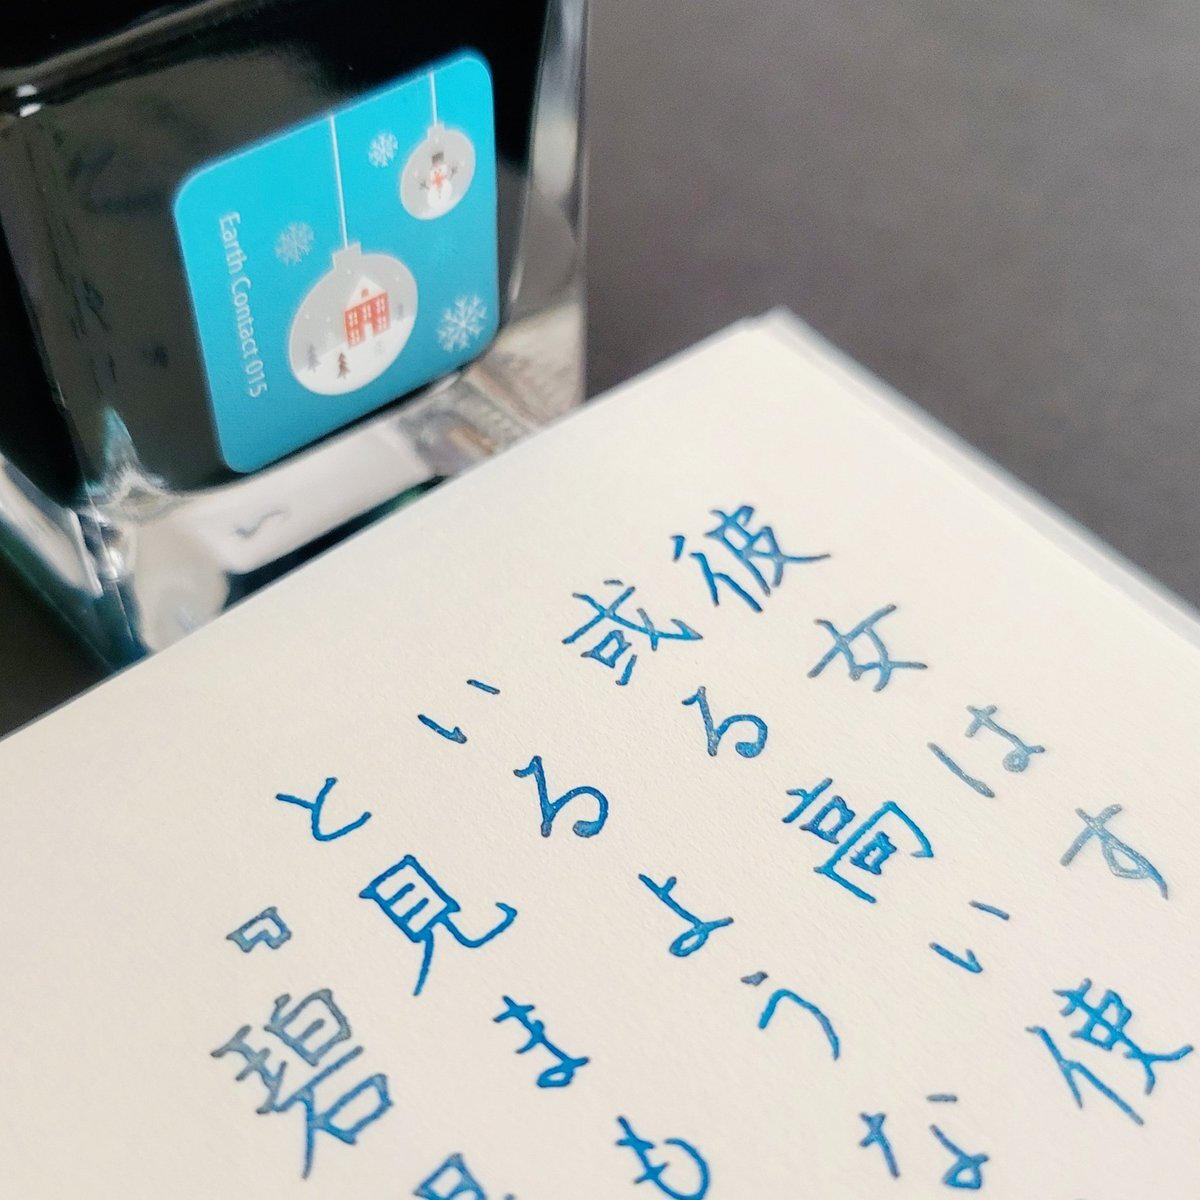 Earth Contact 015
彼女はす
或る高い使
いるような
と見まも
『碧